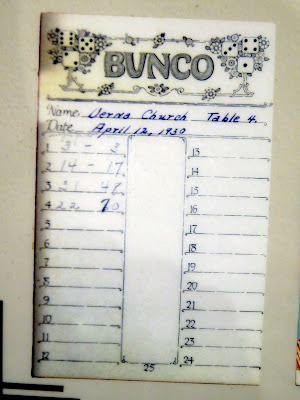 BUNCO
Name Verna Church Table 4.
Date April 12, 1930
1 3 - 3
2 14 - 17
3 21
4 22
5
6
7
8
9
10
11
12
25
13
14
15
16
17
18
19
20
21
22
23
24